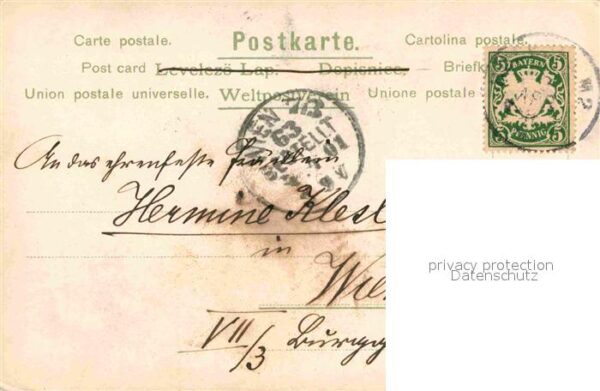 Carte postale. Postkarte. Cartolina postale.
Post card Levelező Lap. Dopisnice. Briefk
Union postale universelle. Weltpostverein Unione postale
5 BAYERN 5
5 PFENNIG 5
M 2
WIEN
An das ehrenfeste Fräulein
Hermine
in
Wi
VII/3 Burgg
privacy protection
Datenschutz